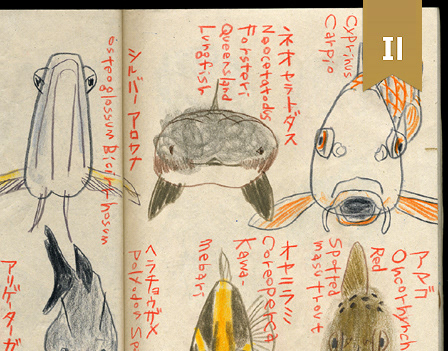 II
Cyprinus
Carpio
Neoceratodus
Forsteri
Queensland
Lungfish
シルバー アロワナ
osteoglossum Bicirrhosum
アマゴ
Oncorhynch
Red
Spotted
masu trout
オヤニラミ
Coreoperca
Kawa-
mebari
ヘラチョウザメ
Polyodon Sp
アリゲーターガ